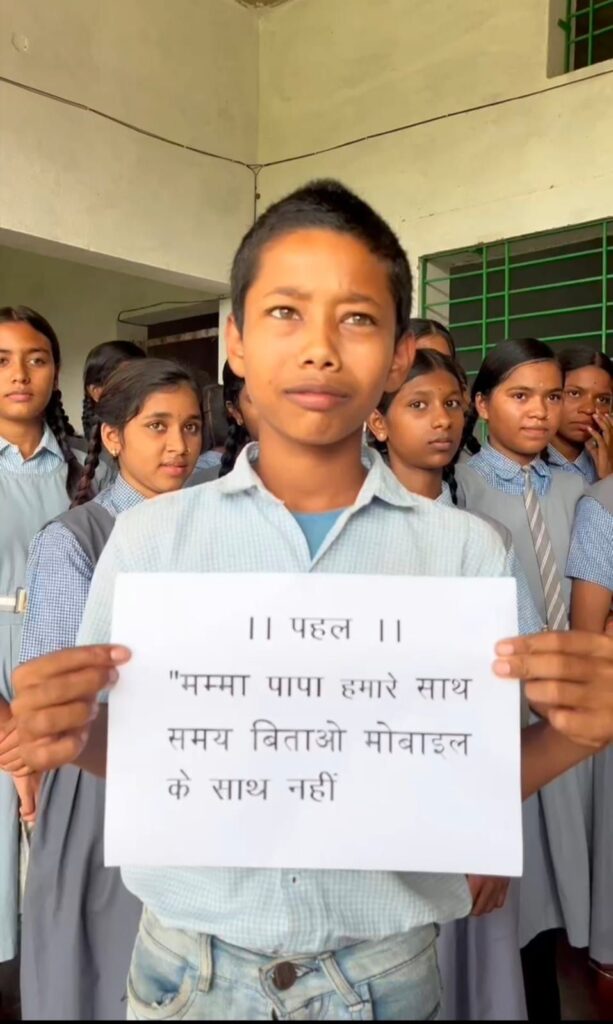 ।। पहल ।।
"मम्मा पापा हमारे साथ
समय बिताओ मोबाइल
के साथ नहीं